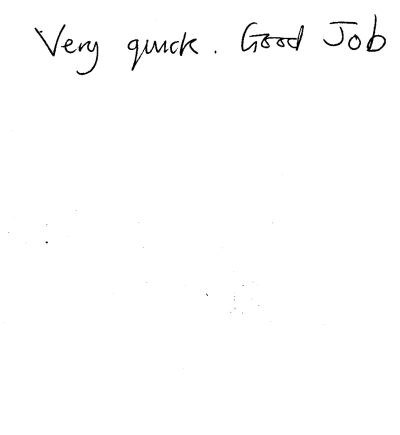 Very quick. Good Job